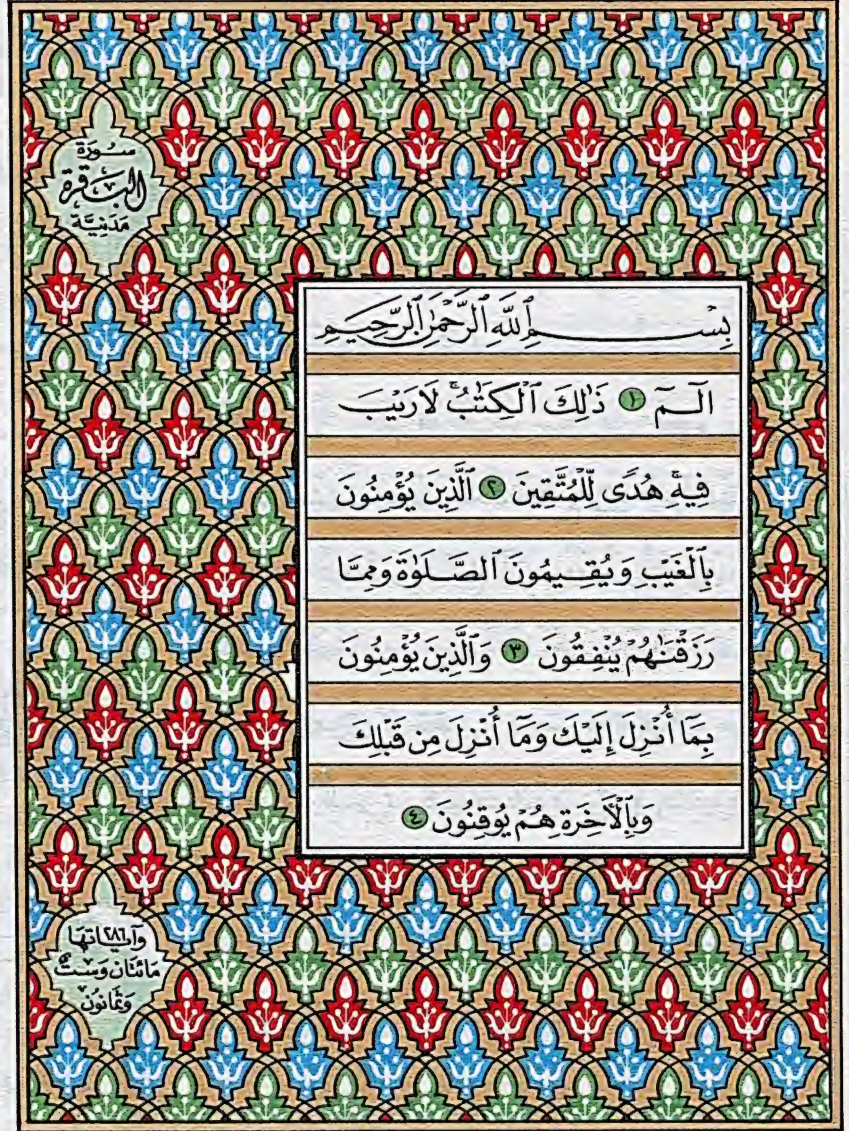 سورة
البقرة
مدنية
بِسْمِ ٱللَّهِ ٱلرَّحْمَٰنِ ٱلرَّحِيمِ
الٓمٓ ١ ذَٰلِكَ ٱلْكِتَٰبُ لَا رَيْبَ
فِيهِ هُدًى لِّلْمُتَّقِينَ ٢ ٱلَّذِينَ يُؤْمِنُونَ
بِٱلْغَيْبِ وَيُقِيمُونَ ٱلصَّلَوٰةَ وَمِمَّا
رَزَقْنَٰهُمْ يُنْفِقُونَ ٣ وَٱلَّذِينَ يُؤْمِنُونَ
بِمَآ أُنْزِلَ إِلَيْكَ وَمَآ أُنْزِلَ مِن قَبْلِكَ
وَبِٱلْأَخِرَةِ هُمْ يُوقِنُونَ ٤
وآياتها ٢٨٦
مائتان وست
وثمانون